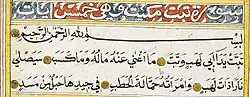 سورة تبت مكية وهي خمس آيات
بسم الله الرحمن الرحيم
تبت يدا ابي لهب وتب ما اغنى عنه ماله وما كسب سيصلى
نارا ذات لهب وامراته حمالة الحطب في جيدها حبل من مسد